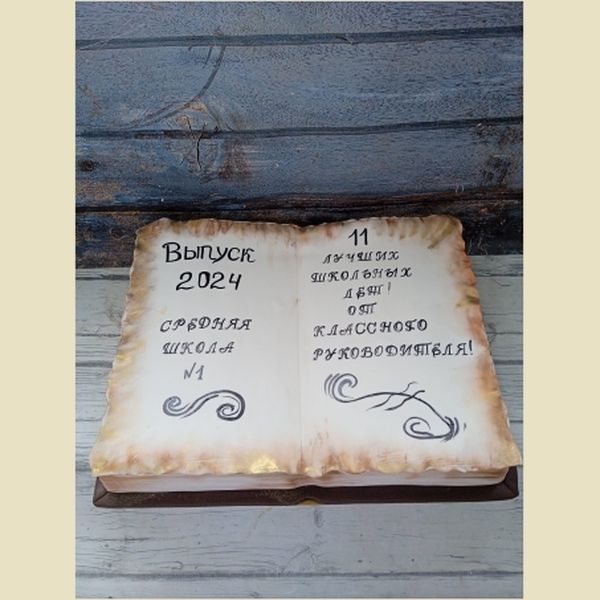 Выпуск
2024
СРЕДНЯЯ
ШКОЛА
№1
11
ЛУЧШИХ
ШКОЛЬНЫХ
ЛЕТ!
ОТ
КЛАССНОГО
РУКОВОДИТЕЛЯ!